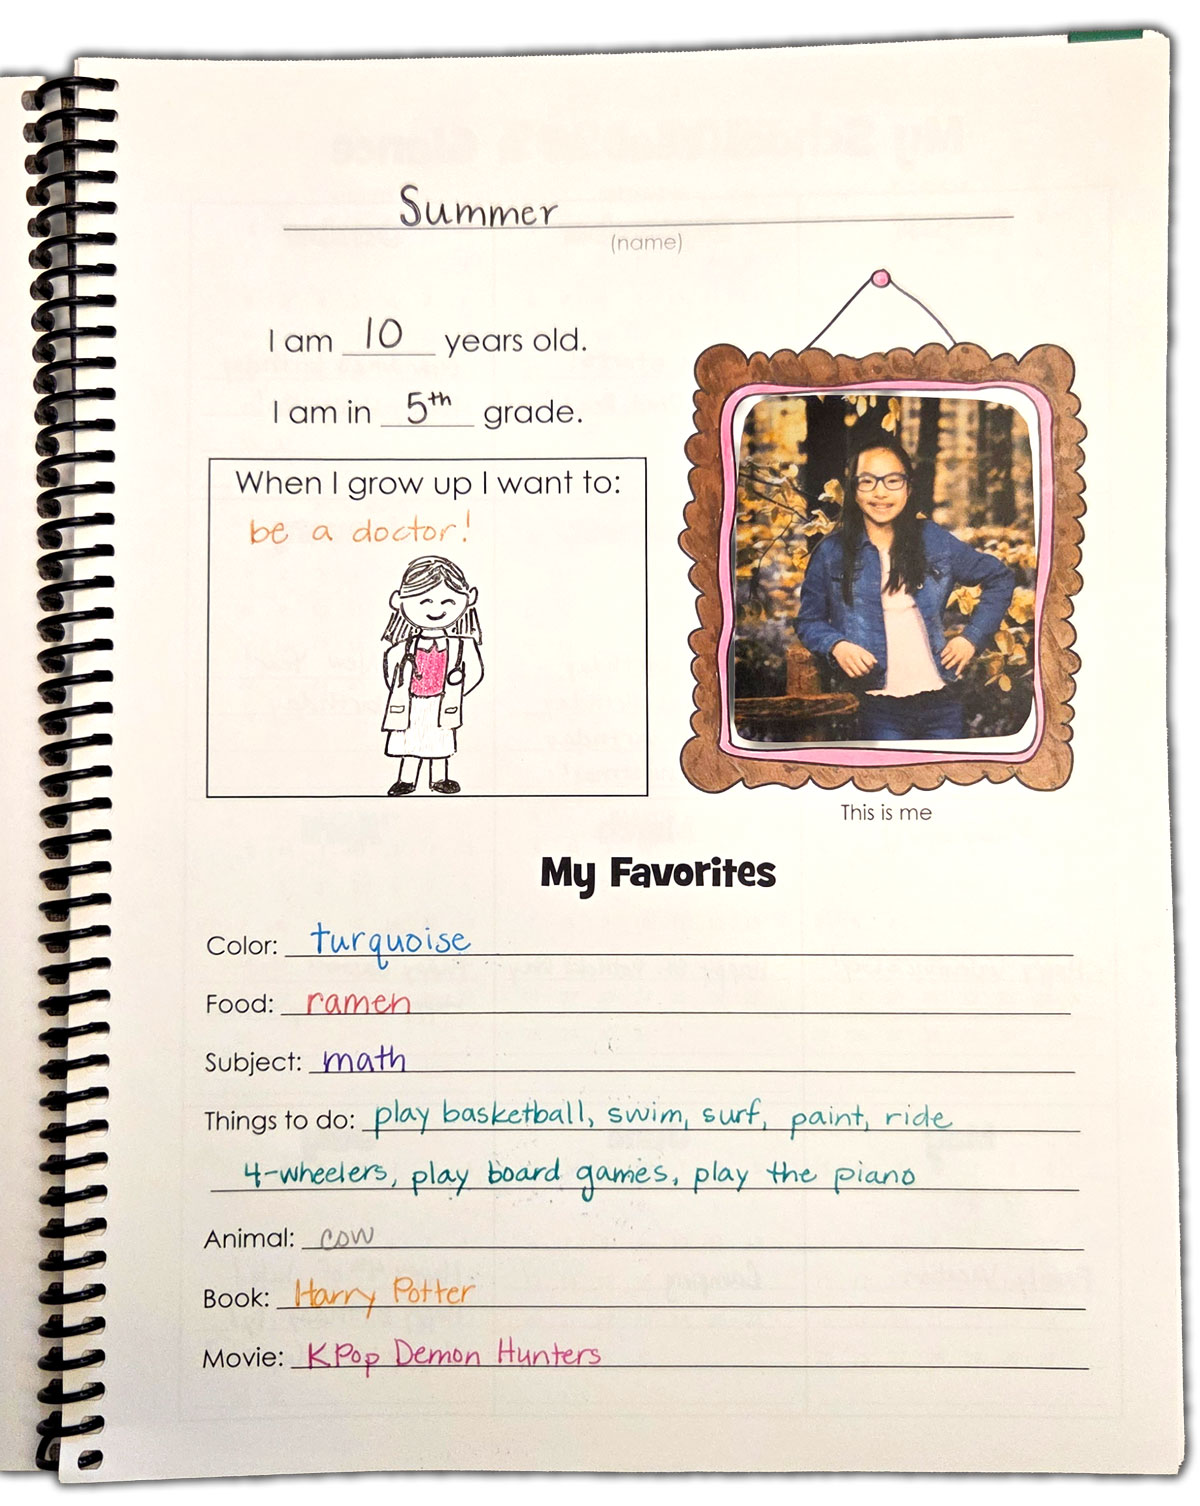 Summer
(name)
I am 10 years old.
I am in 5th grade.
When I grow up I want to:
be a doctor!
This is me
My Favorites
Color: turquoise
Food: ramen
Subject: math
Things to do: play basketball, swim, surf, paint, ride
4-wheelers, play board games, play the piano
Animal: cow
Book: Harry Potter
Movie: KPop Demon Hunters